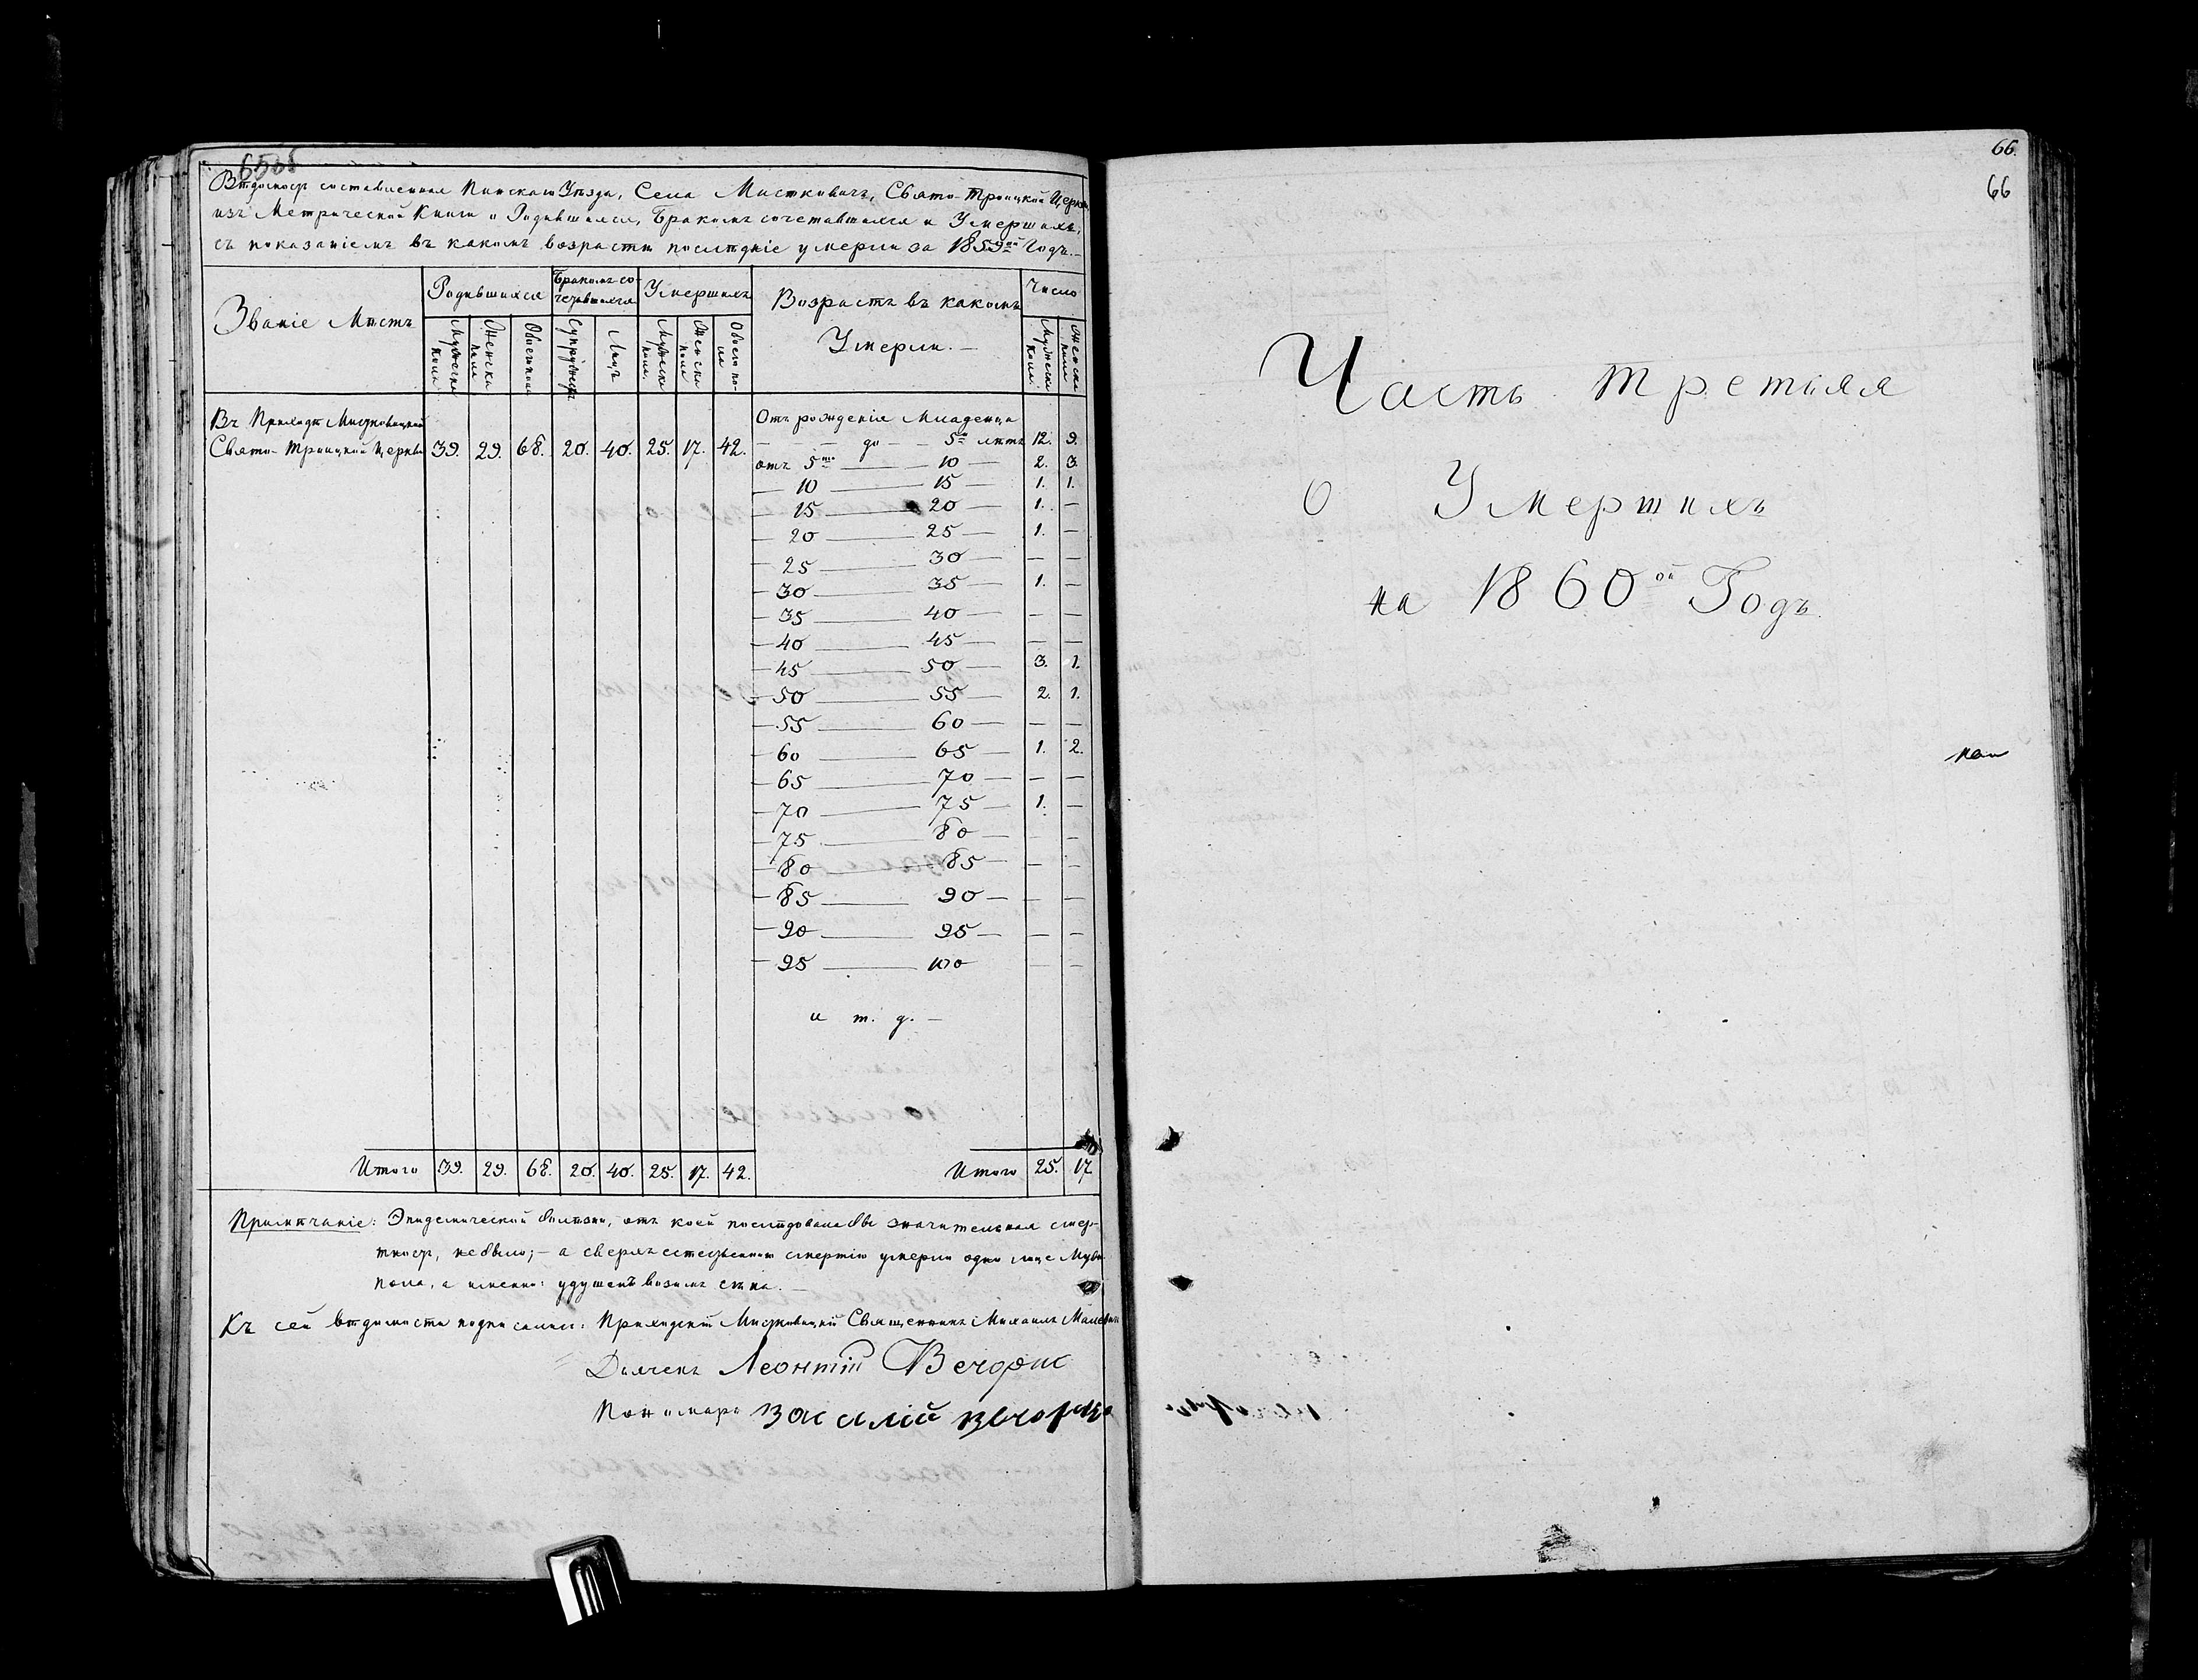 65об
Вѣдомость составленная Пинскаго Уѣзда, Села Мистковичъ, Свято-Троицкой Церкви
изъ Метрической Книги о Родившихся, Бракомъ сочетавшихся и Умершихъ,
съ показаніемъ въ какомъ возрастѣ послѣдніе умерли за 1859ый Годъ.
Званіе Мѣстъ
Родившихся
Бракомъ со-
четавшихся
Умершихъ
Возрастъ въ какомъ
Умерли. —
Число
Мужеска пола
Женска пола
Обоего пола
Супружествъ
Лицъ
Мужеска пола.
Женска пола
Обоего по-ла
Мужеска пола.
Женска пола
Въ Приходѣ Мистковицкой
Свято-Троицкой Церкви 39. 29. 68. 20. 40. 25. 17. 42.
Отъ рожденія Младенца
— — до — — 5ти лѣтъ 12. 9.
отъ 5ти — 10 — 2. 3.
— 10 — 15 — 1. 1.
— 15 — 20 — 1. —
— 20 — 25 — 1. —
— 25 — 30 — — —
— 30 — 35 — 1. —
— 35 — 40 — — —
— 40 — 45 — — —
— 45 — 50 — 3. 1.
— 50 — 55 — 2. 1.
— 55 — 60 — — —
— 60 — 65 — 1. 2.
— 65 — 70 — — —
— 70 — 75 — 1. —
— 75 — 80 — — —
— 80 — 85 — — —
— 85 — 90 — — —
— 90 — 95 — — —
— 95 — 100 — —
и т. д. —
Итого 39. 29. 68. 20. 40. 25. 17. 42. Итого 25. 17
Примѣчаніе: Эпидемической болѣзни, отъ коей послѣдовала бы значительная смер-
тность, не было; — а сверхъестественною смертію умерли одно лице Муж.
пола, а именно: удушенъ возомъ сѣна. —
Къ сей вѣдомости подписались: Приходскій Мистковицкій Священникъ Михаилъ
Дьячекъ Леонтій Вечорко
Пономарь Василій Вечорко
66.
66
Часть третіяя
О Умершихъ
на 1860ой Годъ.